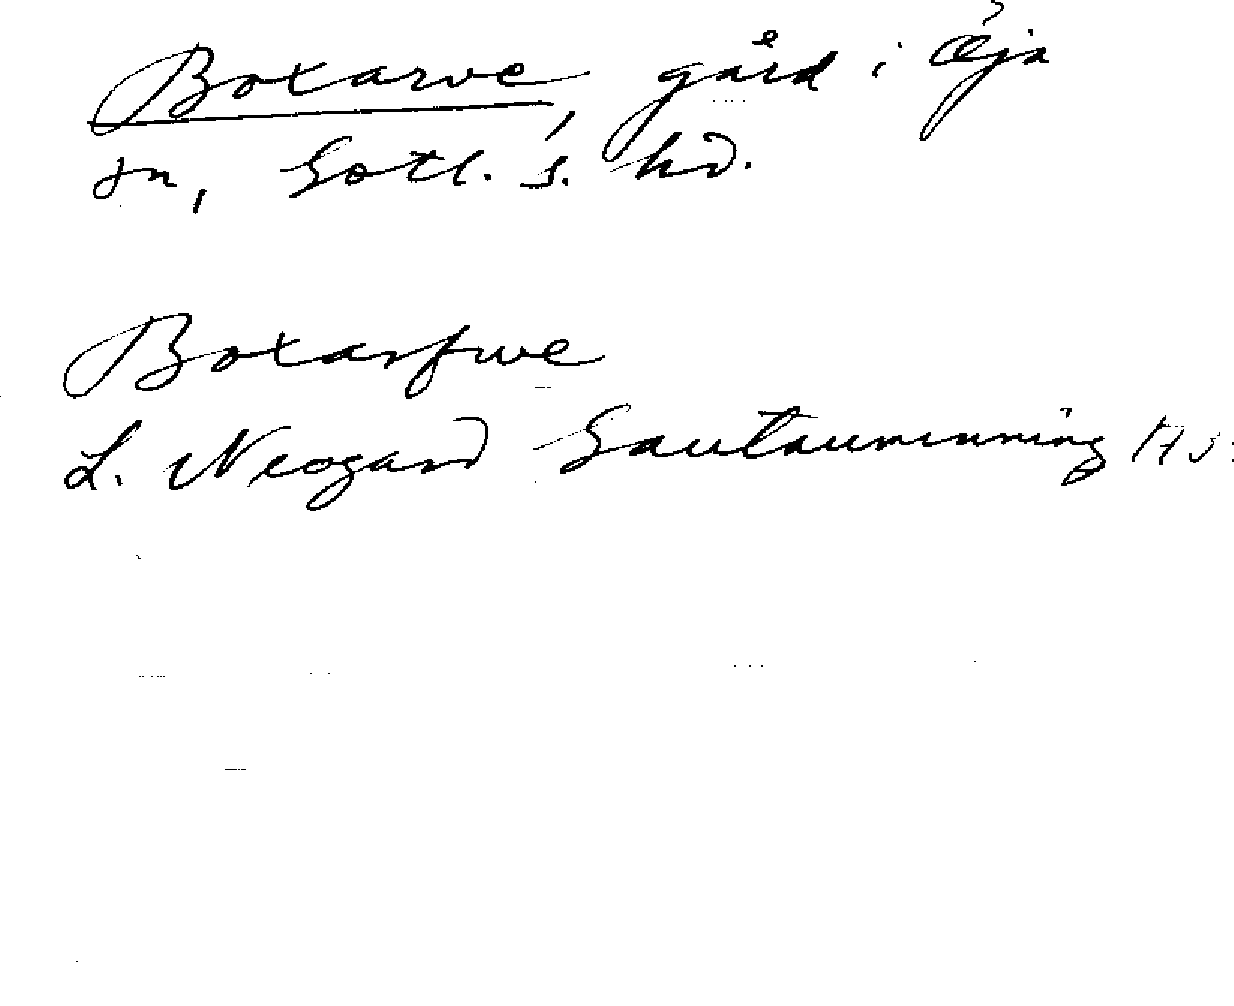 Boxarve, gård i Öja
sn, Gotl. s. hd.
Boxarfwe
L. Neogard Gautauminning